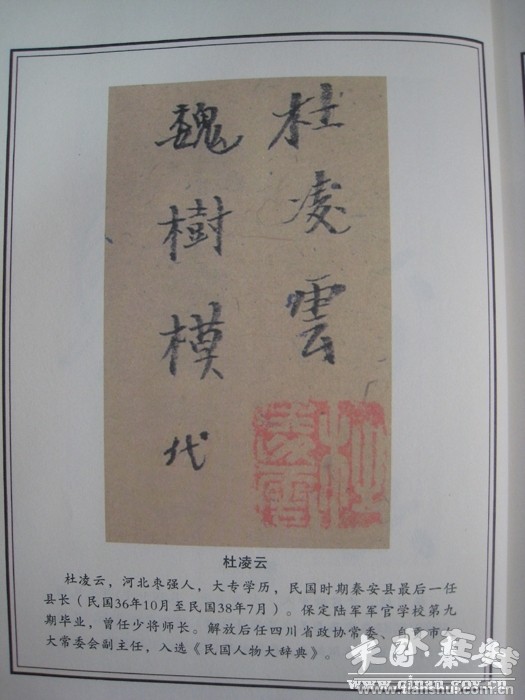 杜凌雲
魏樹模代
杜凌雲
杜凌云
杜凌云，河北枣强人，大专学历，民国时期秦安县最后一任
县长（民国36年10月至民国38年7月）。保定陆军军官学校第九
期毕业，曾任少将师长。解放后任四川省政协常委、自 市
大常委会副主任，入选《民国人物大辞典》。
www.qinan.gov.cn